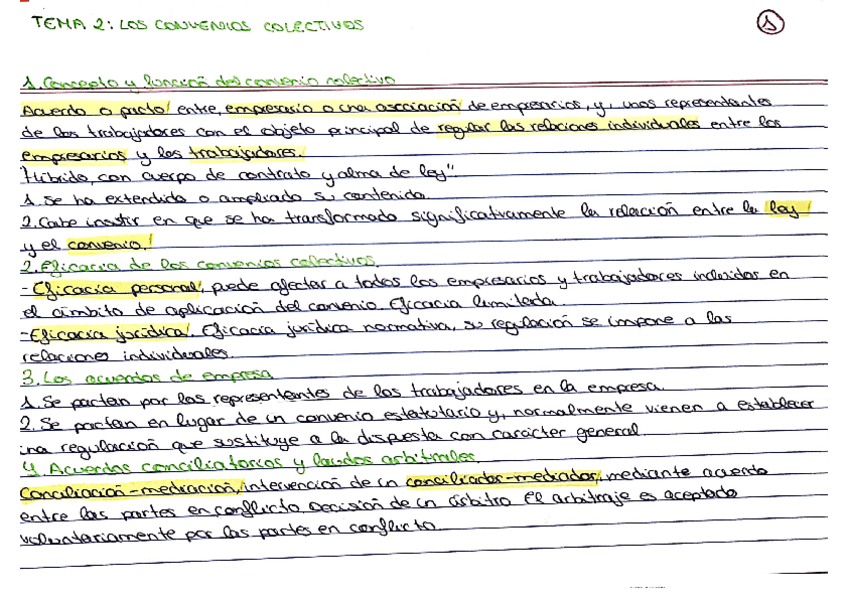 TEMA 2: LOS CONVENIOS COLECTIVOS
1
1. Concepto y función del convenio colectivo
Acuerdo o pacto entre, empresario o una asociación de empresarios, y, unos representantes
de los trabajadores con el objeto principal de regular las relaciones individuales entre los
empresarios y los trabajadores.
"Híbrido, con cuerpo de contrato y alma de ley".
1. Se ha extendido o ampliado su contenido.
2. Cabe insistir en que se ha transformado significativamente la relación entre la ley
y el convenio.
2. Eficacia de los convenios colectivos.
- Eficacia personal, puede afectar a todos los empresarios y trabajadores incluidos en
el ámbito de aplicación del convenio. Eficacia limitada.
- Eficacia jurídica. Eficacia jurídica normativa, su regulación se impone a las
relaciones individuales.
3. Los acuerdos de empresa
1. Se pactan por los representantes de los trabajadores en la empresa.
2. Se pactan en lugar de un convenio estatutario y, normalmente vienen a establecer
una regulación que sustituye a la dispuesta con carácter general.
4. Acuerdos conciliatorios y laudos arbitrales
Conciliación-mediación, intervención de un conciliador-mediador, mediante acuerdo
entre las partes en conflicto. Decisión de un árbitro el arbitraje es aceptado
voluntariamente por las partes en conflicto.